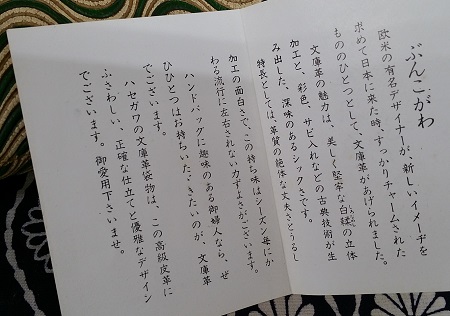 ぶんこがわ
欧米の有名デザイナーが、新しいイメーヂを
求めて日本に来た時、すっかりチャームされた
もののひとつとして、文庫革があげられました。
文庫革の魅力は、美しく堅牢な白鞣の立体
加工と、彩色、サビ入れなどの古典技術が生
み出した、深味のあるシックさです。
特長としては、革質の絶体な丈夫さとうるし
加工の面白さで、この持ち味はシーズン毎にか
わる流行に左右されない力すよさがございます。
ハンドバッグに趣味のある御婦人なら、ぜ
ひひとつはお持ちいたゞきたいのが、文庫革
でございます。
ハセガワの文庫革袋物は、この高級皮革に
ふさわしい、正確な仕立てと優雅なデザイン
でございます。御愛用下さいませ。